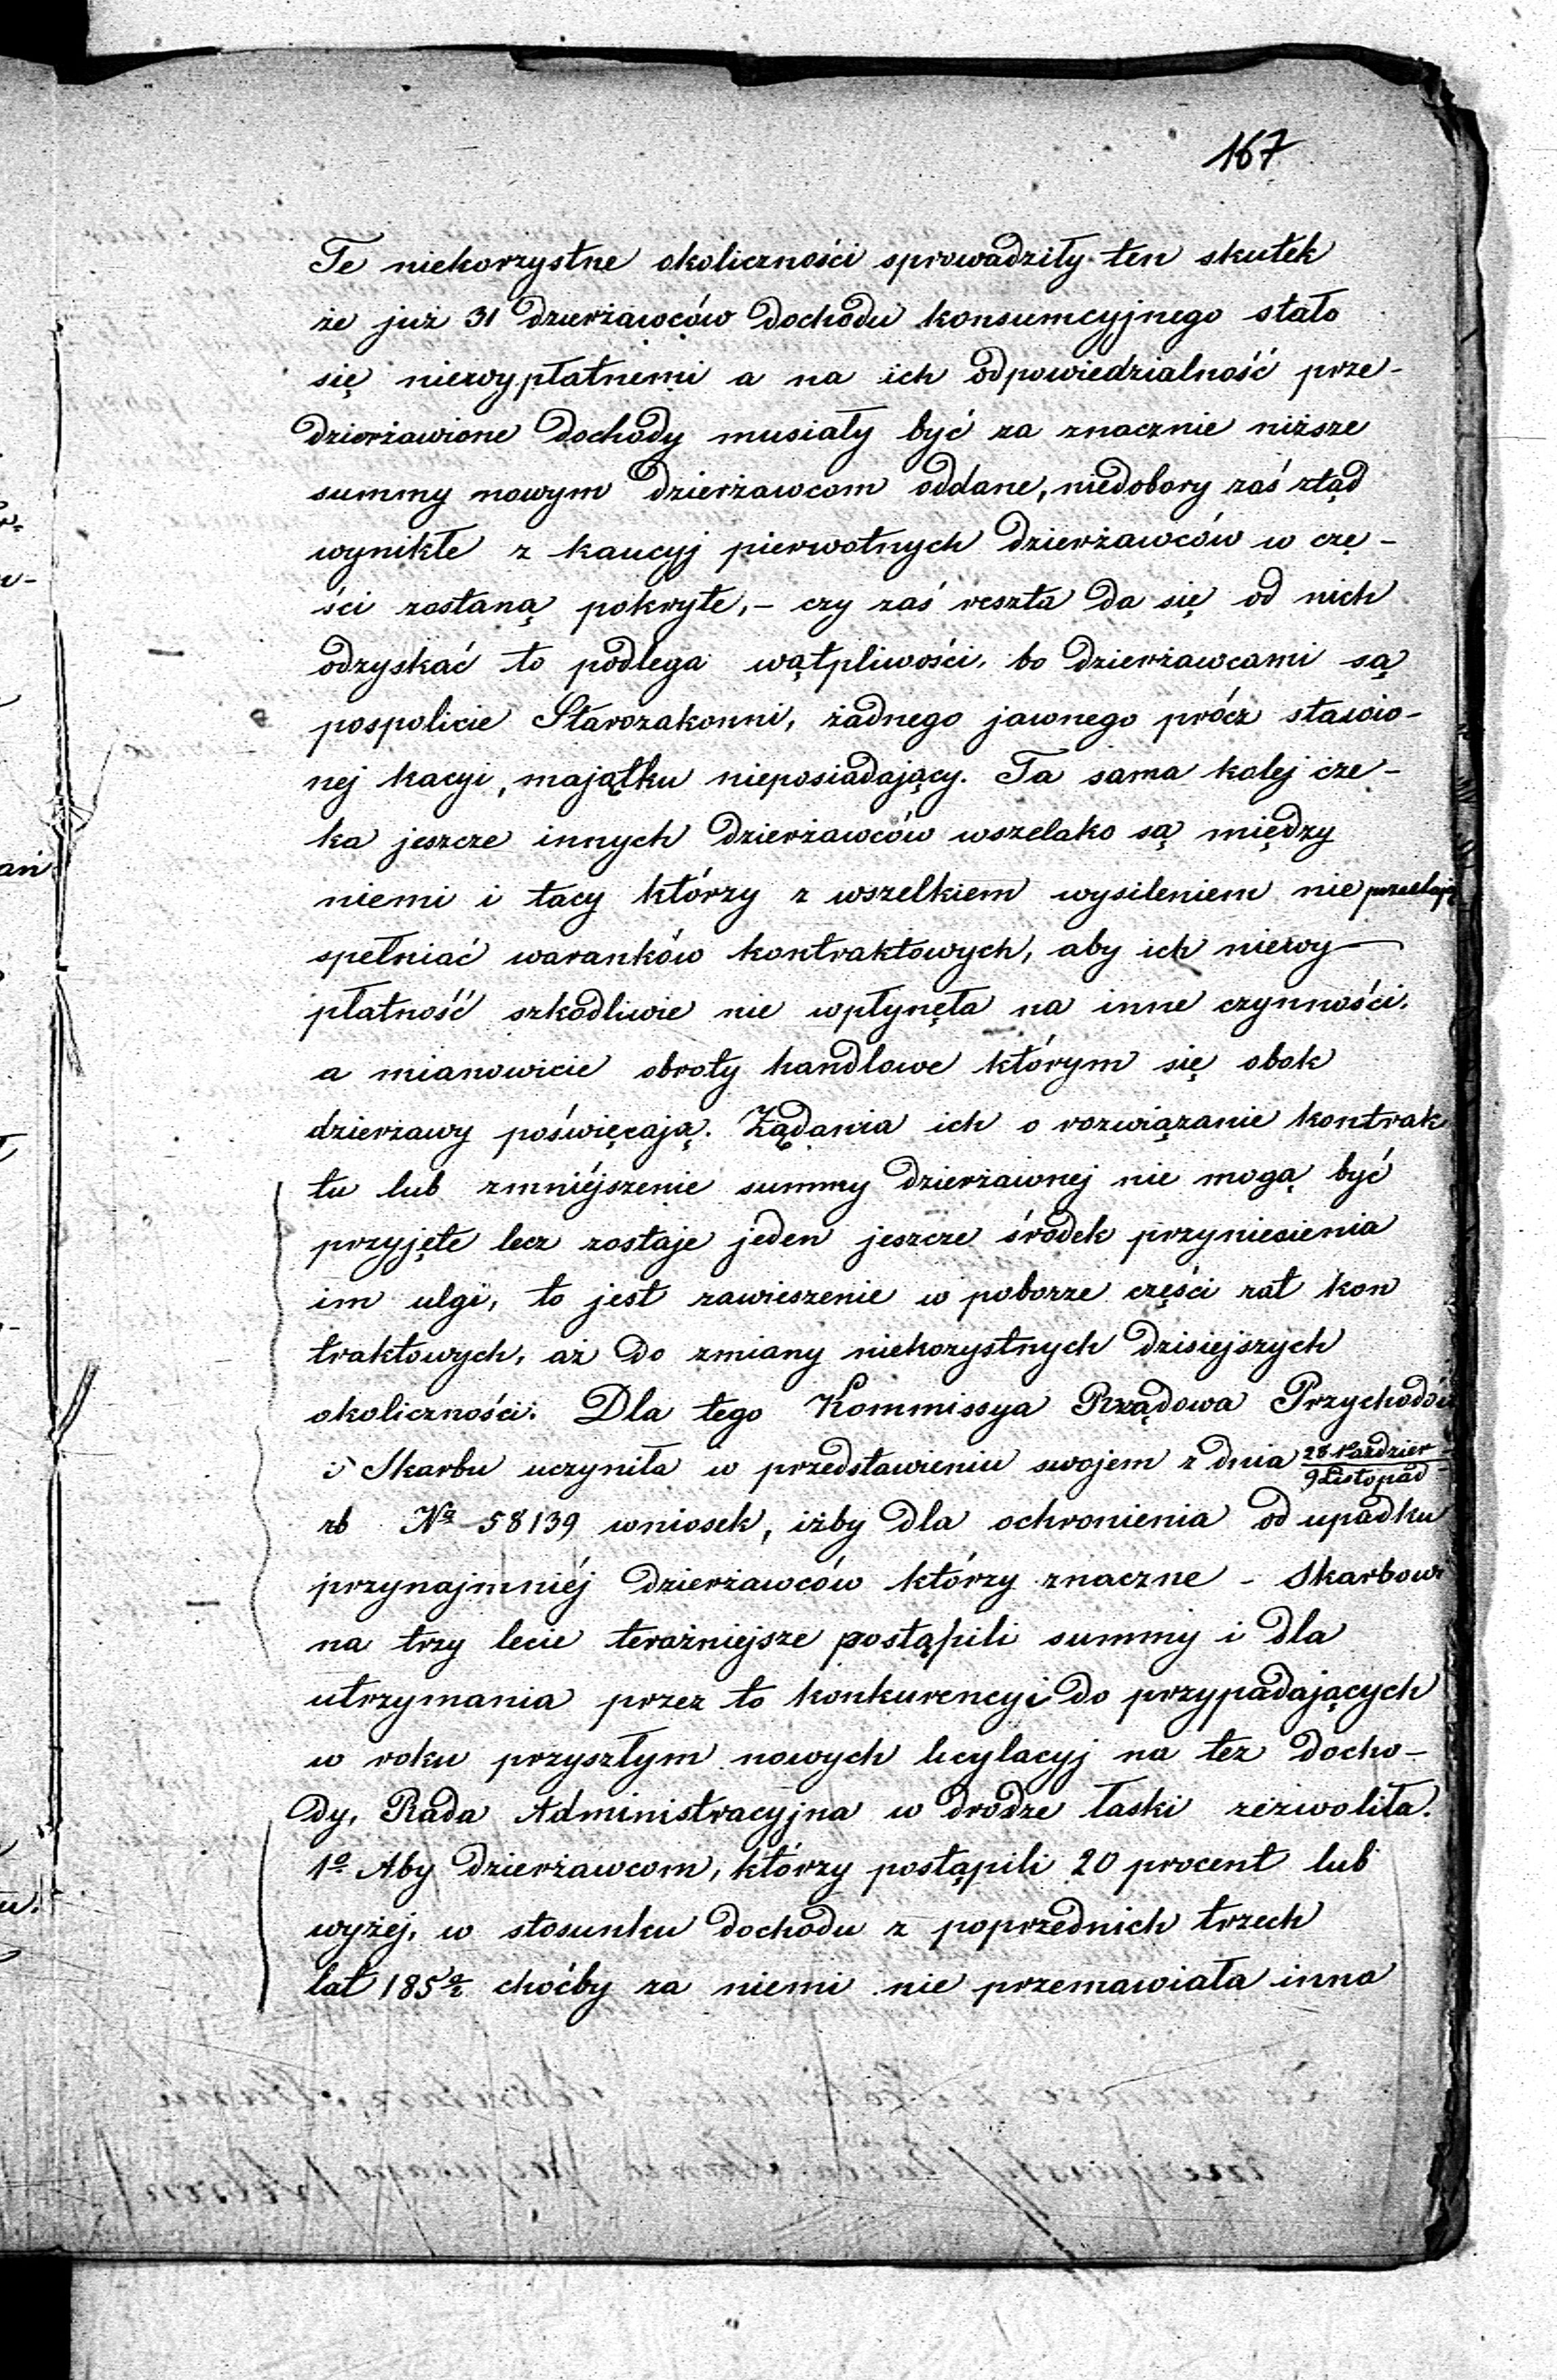 167
Te niekorzystne okoliczności sprowadziły ten skutek
że już 31 dzierżawców dochodu konsumcyjnego stało
się niewypłatnemi a na ich odpowiedzialność prze-
dzierżawione dochody musiały być za znacznie niższe
summy nowym dzierżawcom oddane, niedobory zaś ztąd
wynikłe z kaucyj pierwotnych dzierżawców w czę-
ści zostaną pokryte, - czy zaś reszta da się od nich
odzyskać to podlega wątpliwości, bo dzierżawcami są
pospolicie Starozakonni, żadnego jawnego prócz stawio-
nej kacyi, majątku nieposiadający. Ta sama kolej cze-
ka jeszcze innych dzierżawców wszelako są między
niemi i tacy którzy z wszelkiem wysileniem nie przestają
spełniać waranków kontraktowych, aby ich niewy-
płatność szkodliwie nie wpłynęła na inne czynności.
a mianowicie obroty handlowe którym się obok
dzierżawy poświęcają. Żądania ich o rozwiązanie kontrak
tu lub zmniéjszenie summy dzierżawnej nie mogą być
przyjęte lecz zostaje jeden jeszcze środek przyniesienia
im ulgi, to jest zawieszenie w poborze części rat kon
traktowych, aż do zmiany niekorzystnych dzisiejszych
okoliczności. Dla tego Kommissya Rządowa Przychodów
i Skarbu uczyniła w przedstawieniu swojem z dnia 28 Paździer-
9 Listopad
rb № 58139 wniosek, iżby dla ochronienia od upadku
przynajmniéj dzierżawców którzy znaczne - Skarbowi
na trzy lecie teraźniejsze postąpili summy i dla
utrzymania przez to konkurencyi do przypadających
w roku przyszłym nowych licytacyj na też docho-
dy, Rada Administracyjna w drodze łaski zezwoliła.
1º Aby dzierżawcom, którzy postąpili 20 procent lub
wyżej, w stosunku dochodu z poprzednich trzech
lat choćby za niemi nie przemawiała inna